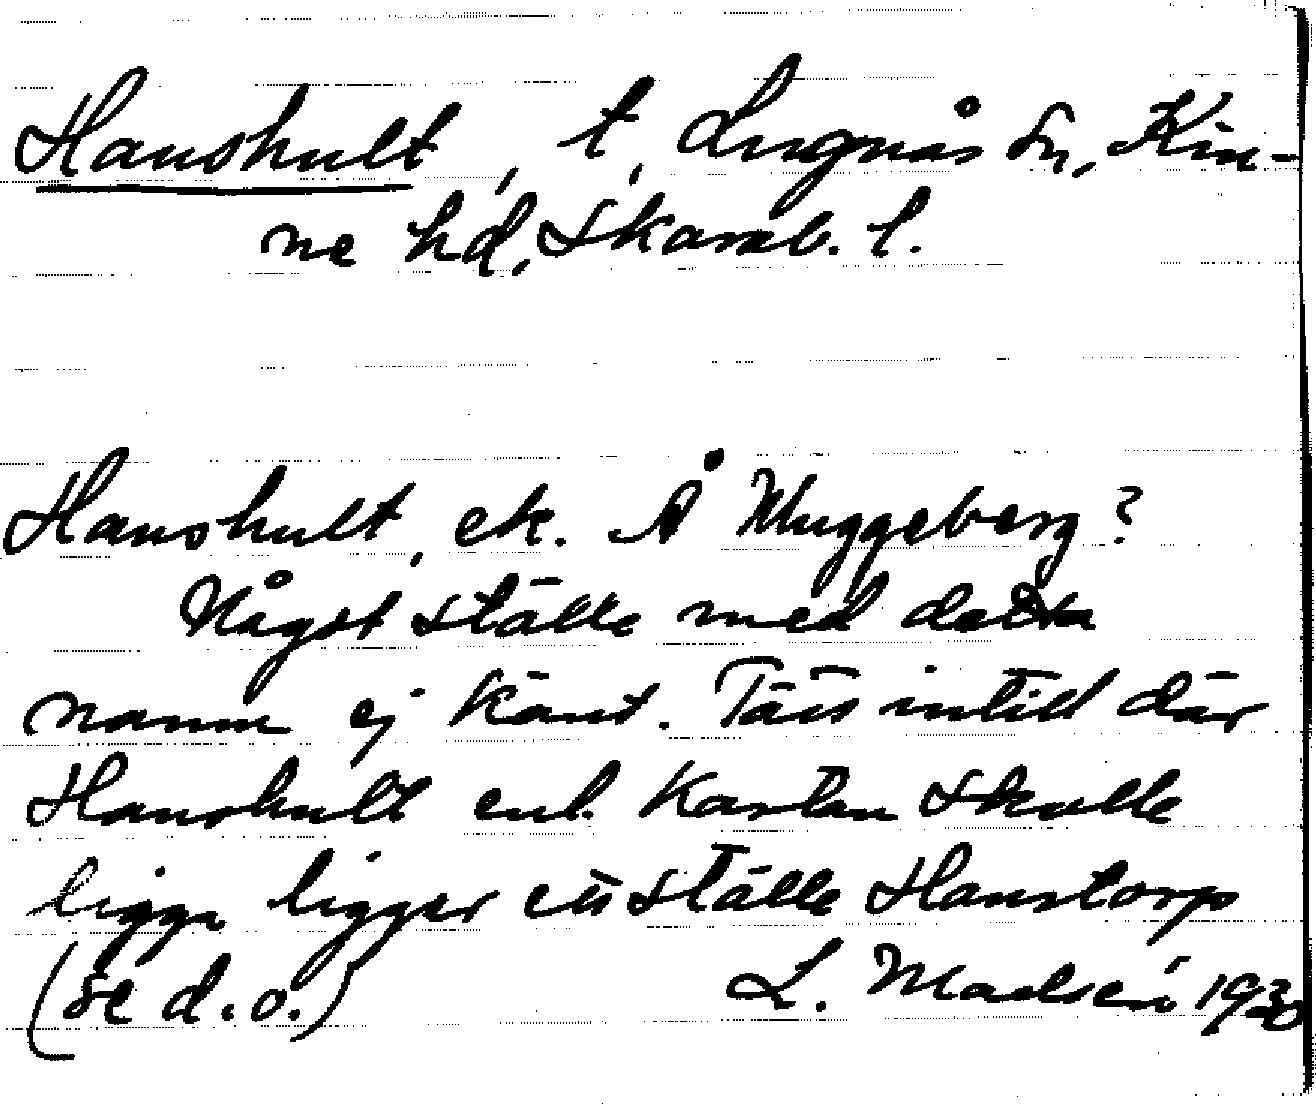 Hanshult, t, Lugnås sn, Kin-
ne hd, Skarab. l.
Hanshult, ek. Å Muggeberg?
Något ställe med detta
namn ej känt. Täts intill där
Hanshult enl. kartan skulle
ligga ligger ett ställe Hanstorp
(se d.o.) L. Madsén 1930